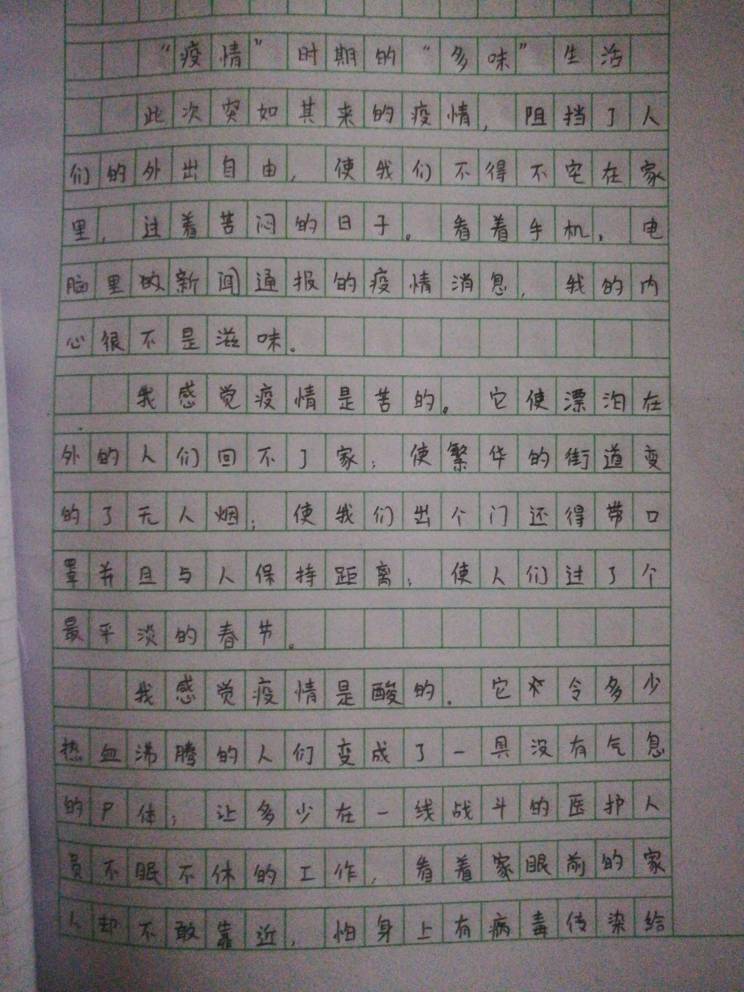 “疫情”时期的“多味”生活
此次突如其来的疫情，阻挡了人
们的外出自由，使我们不得不宅在家
里，过着苦闷的日子。看着手机，电
脑里的新闻通报的疫情消息，我的内
心很不是滋味。
我感觉疫情是苦的。它使漂泊在
外的人们回不了家；使繁华的街道变
的了无人烟；使我们出个门还得带口
罩并且与人保持距离；使人们过了个
最平淡的春节。
我感觉疫情是酸的。它令多少
热血沸腾的人们变成了一具没有气息
的尸体；让多少在一线战斗的医护人
员不眠不休的工作，看着家眼前的家
人却不敢靠近，怕身上有病毒传染给